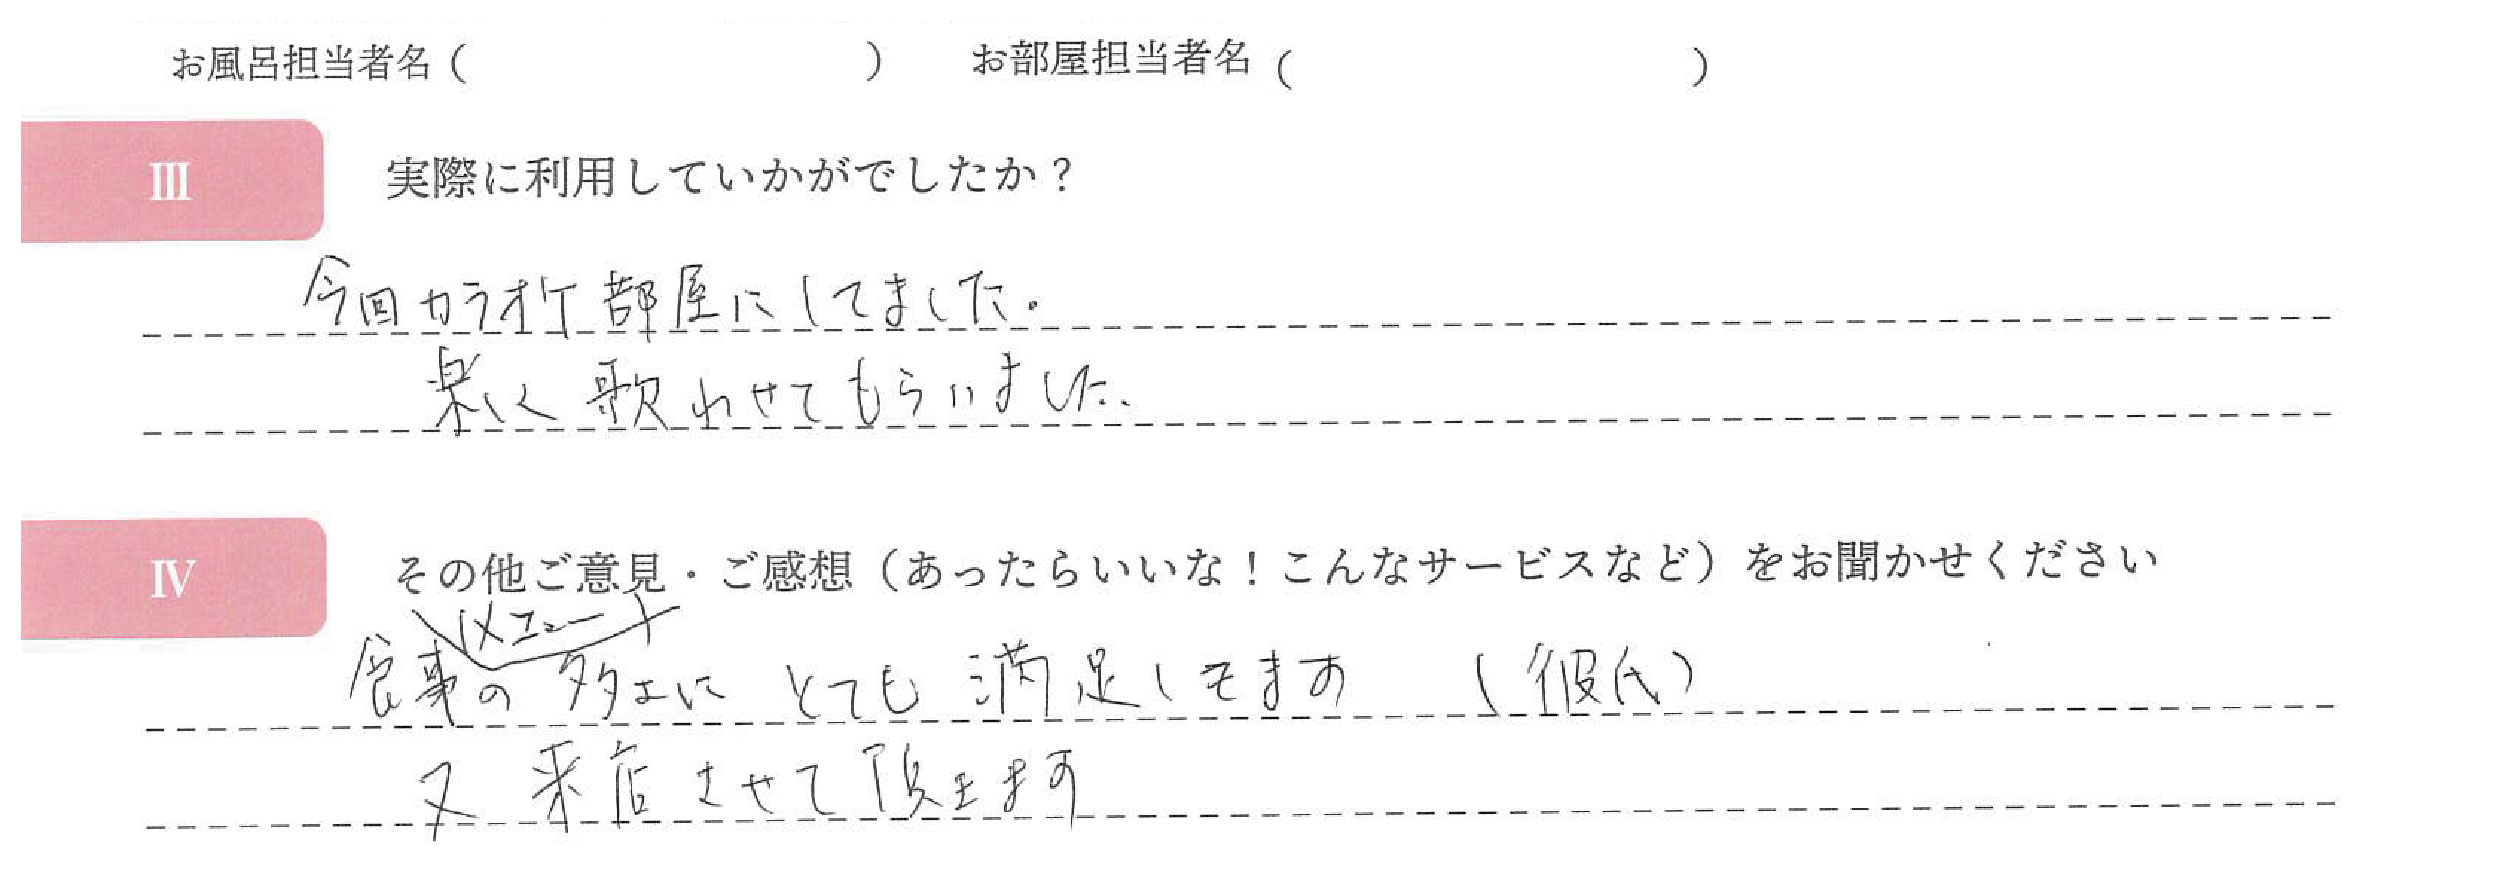 お風呂担当者名（　　　　　　　　）　お部屋担当者名（　　　　　　　　）
III　実際に利用していかがでしたか？
今回カラオケ部屋にしてました。
楽しく歌わせてもらいました。
IV　その他ご意見・ご感想（あったらいいな！こんなサービスなど）をお聞かせください
（メニュー）
食事の多さに とても 満足してます （彼氏）
又 来店させて頂きます